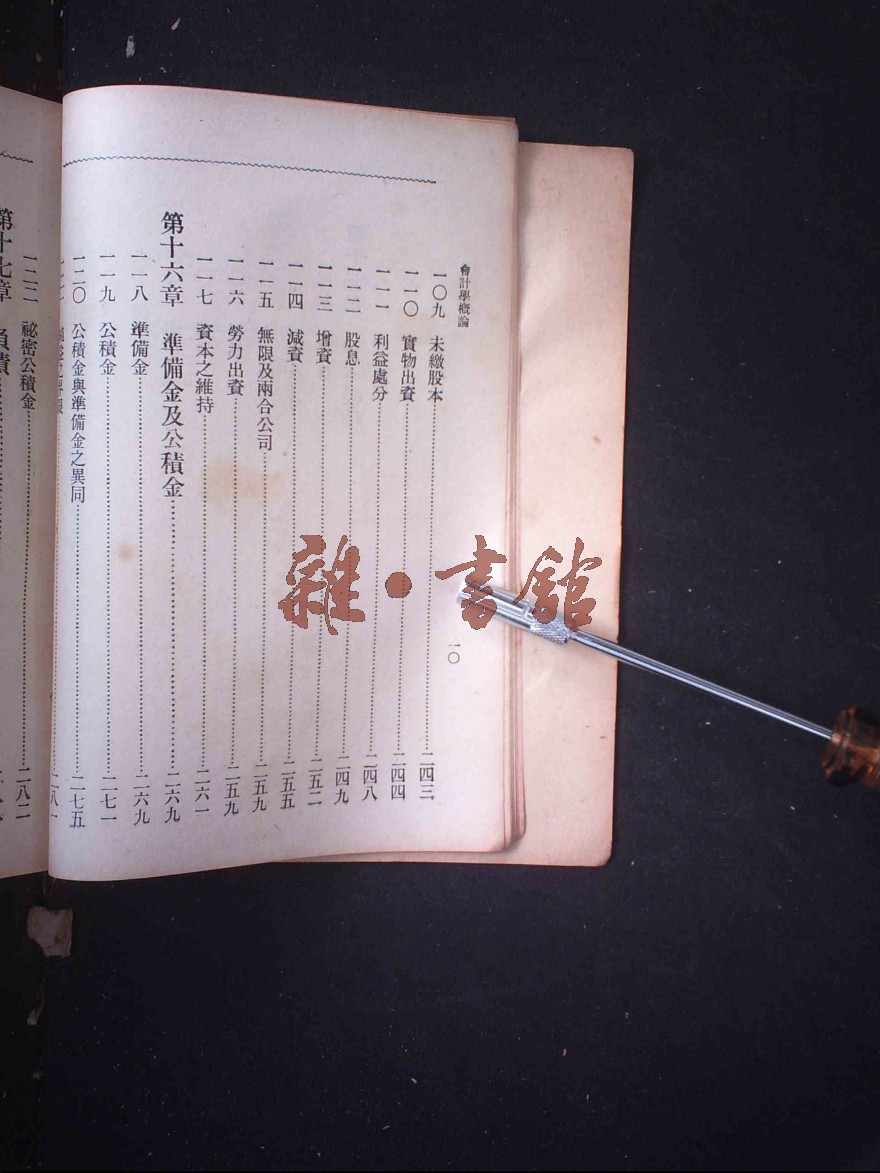 會計學概論
一〇
一〇九 未繳股本 二四三
一一〇 實物出資 二四四
一一一 利益處分 二四八
一一二 股息 二四九
一一三 增資 二五二
一一四 減資 二五五
一一五 無限及兩合公司 二五九
一一六 勞力出資 二五九
一一七 資本之維持 二六一
第十六章 準備金及公積金 二六九
一一八 準備金 二六九
一一九 公積金 二七一
一二〇 公積金與準備金之異同 二七五
二八一
一二二 祕密公積金 二八二
第十七章 負債
雜·書館